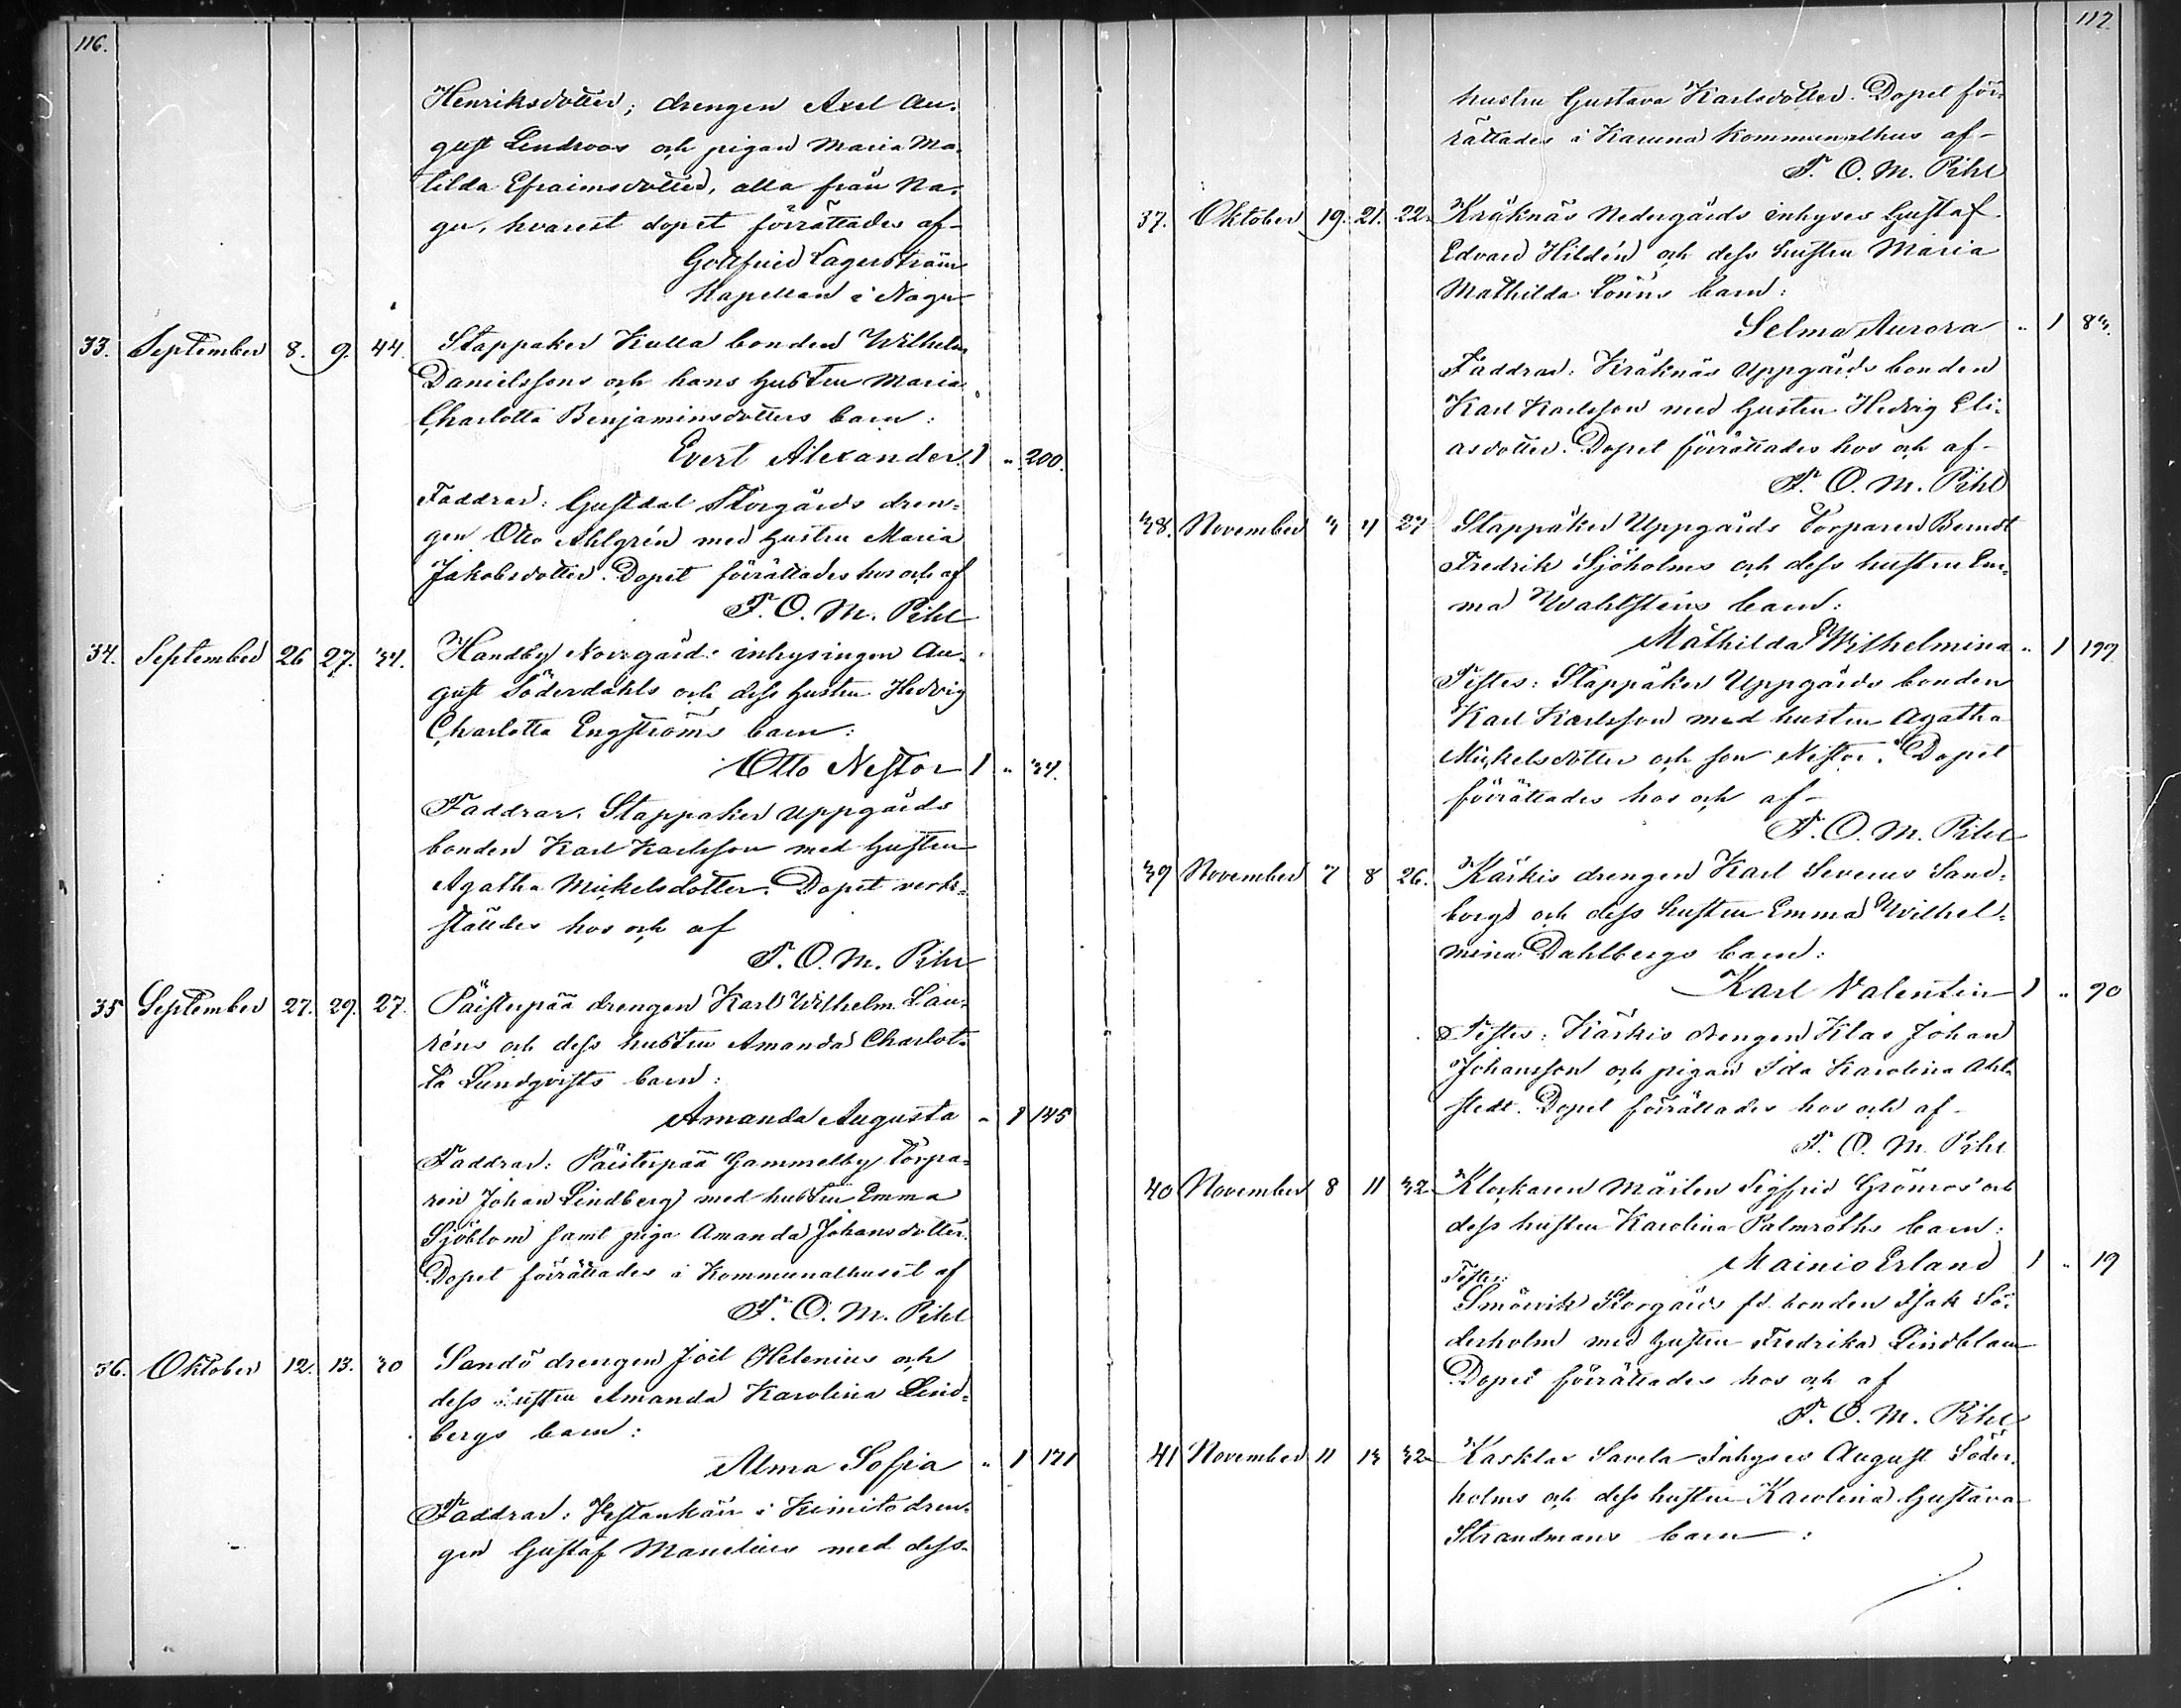 116.
Henriksdotter; drengen Axel Au-
gust Lindroos och pigan Maria Ma-
tilda Efraimsdotter, alla från Na-
gu, hvarest dopet förrättades af
Gottfried Lagerström
Kapellan i Nagu
33. September 8. 9. 44. Stappaker Kulla bonden Wilhelm
Danielssons och hans hustru Maria
Charlotta Benjaminsdotters barn:
Evert Alexander 1 „ 200.
Faddrar: Gustdal Storgårds dren-
gen Otto Ahlgrén med hustru Maria
Jakobsdotter. Dopet förrättades hos och af
F. O. M. Pihl
34. September 26 27. 34. Handby Norrgårds inhysingen Au-
gust Söderdahls och dess hustru Hedvig
Charlotta Engströms barn:
Otto Nestor 1 „ 34.
Faddrar, Stappaker Uppgårds
bonden Karl Karlsson med hustru
Agatha Mickelsdotter. Dopet verk-
ställdes hos och af
F. O. M. Pihl
35 September 27. 29. 27. Päisterpää drengen Karl Wilhelm Lau-
réns och dess hustru Amanda Charlot-
ta Lundqvists barn:
Amanda Augusta „ 1 145
Faddrar: Päisterpää Gammelby torpa-
ren Johan Lindberg med hustru Emma
Sjöblom samt piga Amanda Johansdotter.
Dopet förrättades i Kommunalhuset af
F. O. M. Pihl
36. Oktober 12. 13. 30 Sandö drengen Joel Helenius och
dess hustru Amanda Karolina Lind-
bergs barn:
Alma Sofia „ 1 171
Faddrar: Vestankärr i Kimito dren-
gen Gustaf Mandelius med dess
117.
hustru Gustava Karlsdotter. Dopet för-
rättades i Karuna kommunalhus af
F. O. M. Pihl
37. Oktober 19. 21. 22. Kräknäs Nedergårds inhyses Gustaf
Edvard Hildén och dess hustru Maria
Mathilda Lönns barn:
Selma Aurora „ 1 83.
Faddrar: Kräknäs Uppgårds bonden
Karl Karlsson med hustru Hedvig Eli-
asdotter. Dopet förrättades hos och af
F. O. M. Pihl
38. November 3 4 27 Stappåker Uppgårds Torparen Berndt
Fredrik Sjöholms och dess hustru Em-
ma Wahlstens barn:
Mathilda Wilhelmina „ 1 197
Testes: Stappåker Uppgårds bonden
Karl Karlsson med hustru Agatha
Mickelsdotter och son Nestor. Dopet
förrättades hos och af
F. O. M. Pihl
39 November 7 8 26. Kärkis drengen Karl Severus Sand-
bergs och dess hustru Emma Wilhel-
mina Dahlbergs barn:
Karl Valentin 1 „ 90
Testes: Kärkis drengen Klas Johan
Johansson och pigan Ida Karolina Ahl-
stedt. Dopet förrättades hos och af
F. O. M. Pihl
40 November 8 11 32 Klockaren Mårten Sigfrid Grönros' och
dess hustru Karolina Palmroths barn:
Mainio Erland 1 „ 19
Testes:
Smörvik Storgårds fd. bonden Isak Sö-
derholm med hustru Fredrika Lindblom
Dopet förrättades hos och af
F. O. M. Pihl
41 November 11 13 32 Kasklax Savela Inhyses August Söder-
holms och dess hustru Karolina Gustava
Strandmans barn: